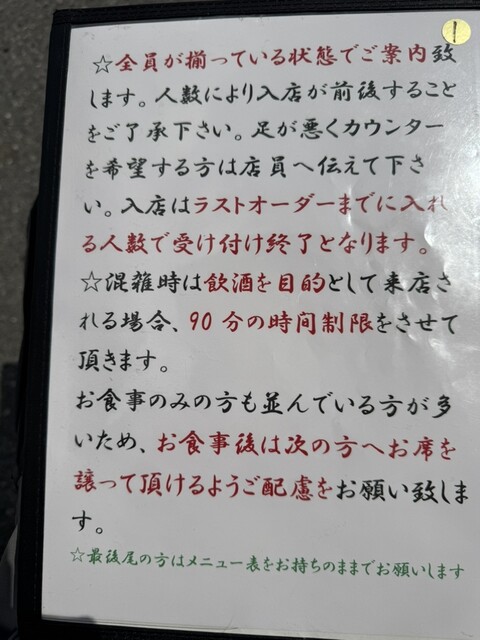 1
☆全員が揃っている状態でご案内致
します。人数により入店が前後すること
をご了承下さい。足が悪くカウンター
を希望する方は店員へ伝えて下さ
い。入店はラストオーダーまでに入れ
る人数で受け付け終了となります。
☆混雑時は飲酒を目的として来店さ
れる場合、90分の時間制限をさせて
頂きます。
お食事のみの方も並んでいる方が多
いため、お食事後は次の方へお席を
譲って頂けるようご配慮をお願い致しま
す。
☆最後尾の方はメニュー表をお持ちのままでお願いします